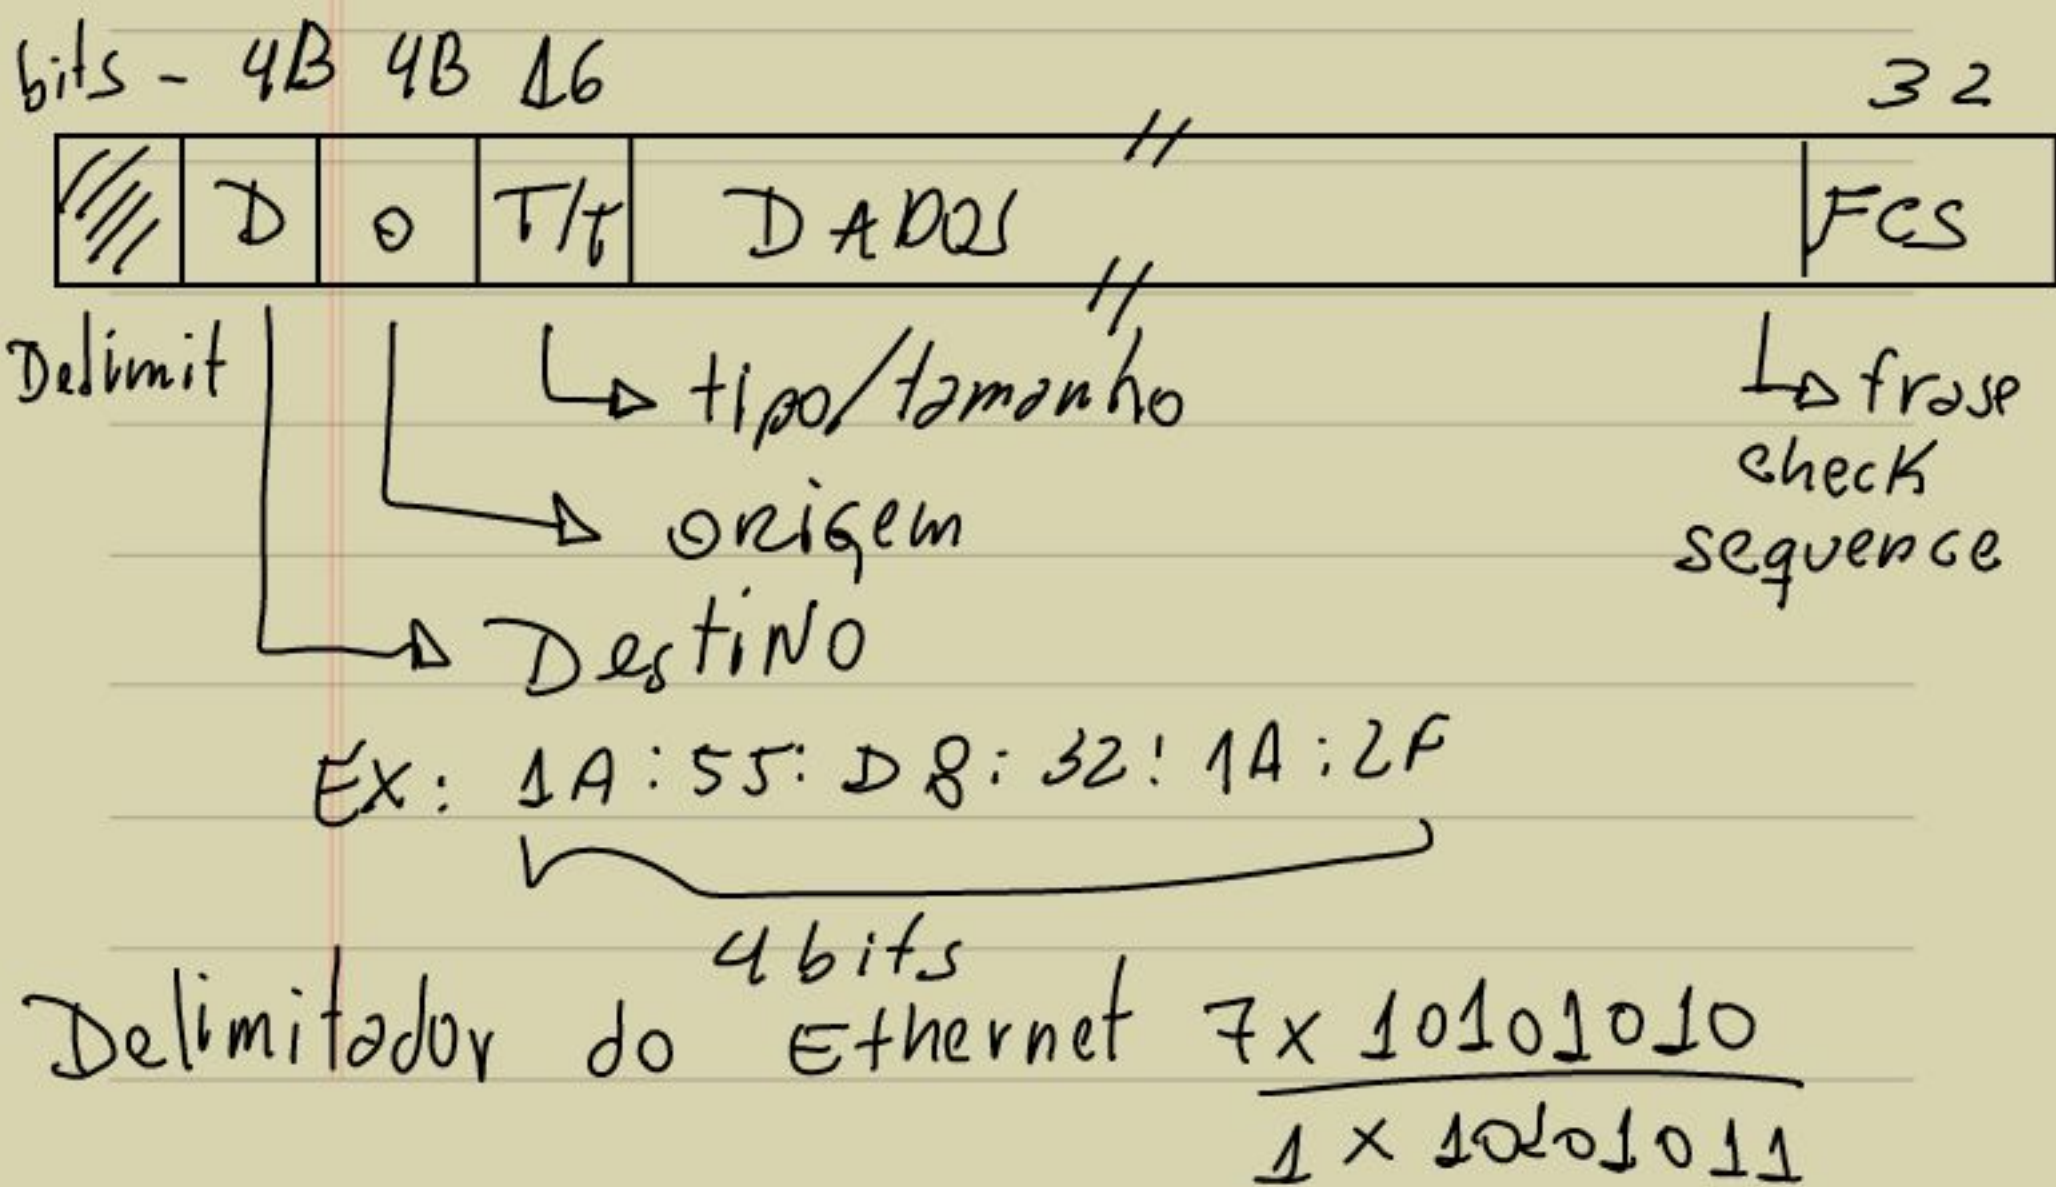 bits - 4B 4B 16 32
D O T/t DADOS FCS
Delimit
tipo/tamanho
frase
check
sequence
origem
Destino
Ex: 1A:55:D8:32:1A:2F
4 bits
Delimitador do Ethernet 7x 10101010
1 x 10101011